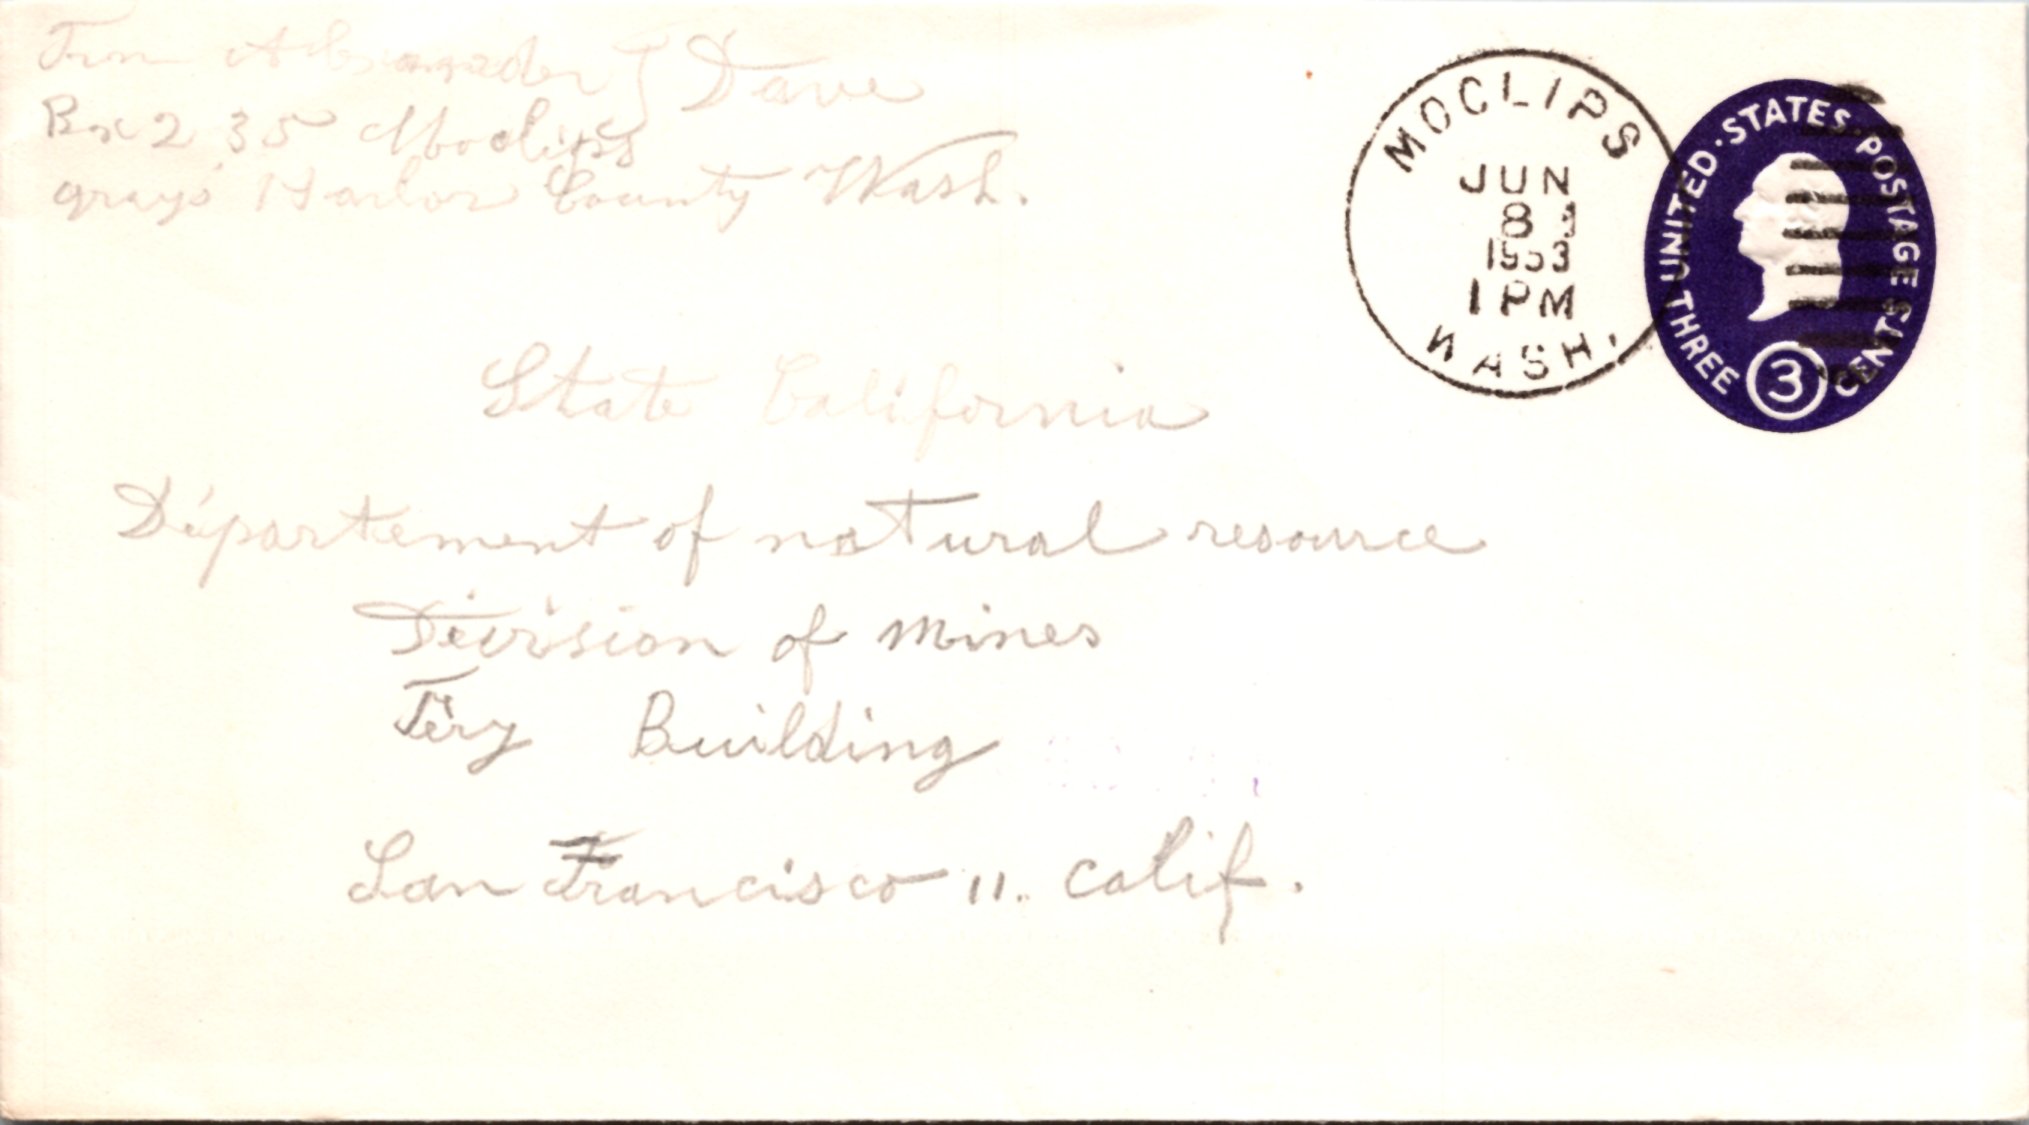 Dave
Box 235 Moclips
grays Harbor County Wash.
MOCLIPS
JUN
8
1953
1 PM
WASH.
UNITED · STATES · POSTAGE
THREE 3 CENTS
State California
Departement of natural resource
Division of Mines
Fery Building
San Francisco 11. Calif.